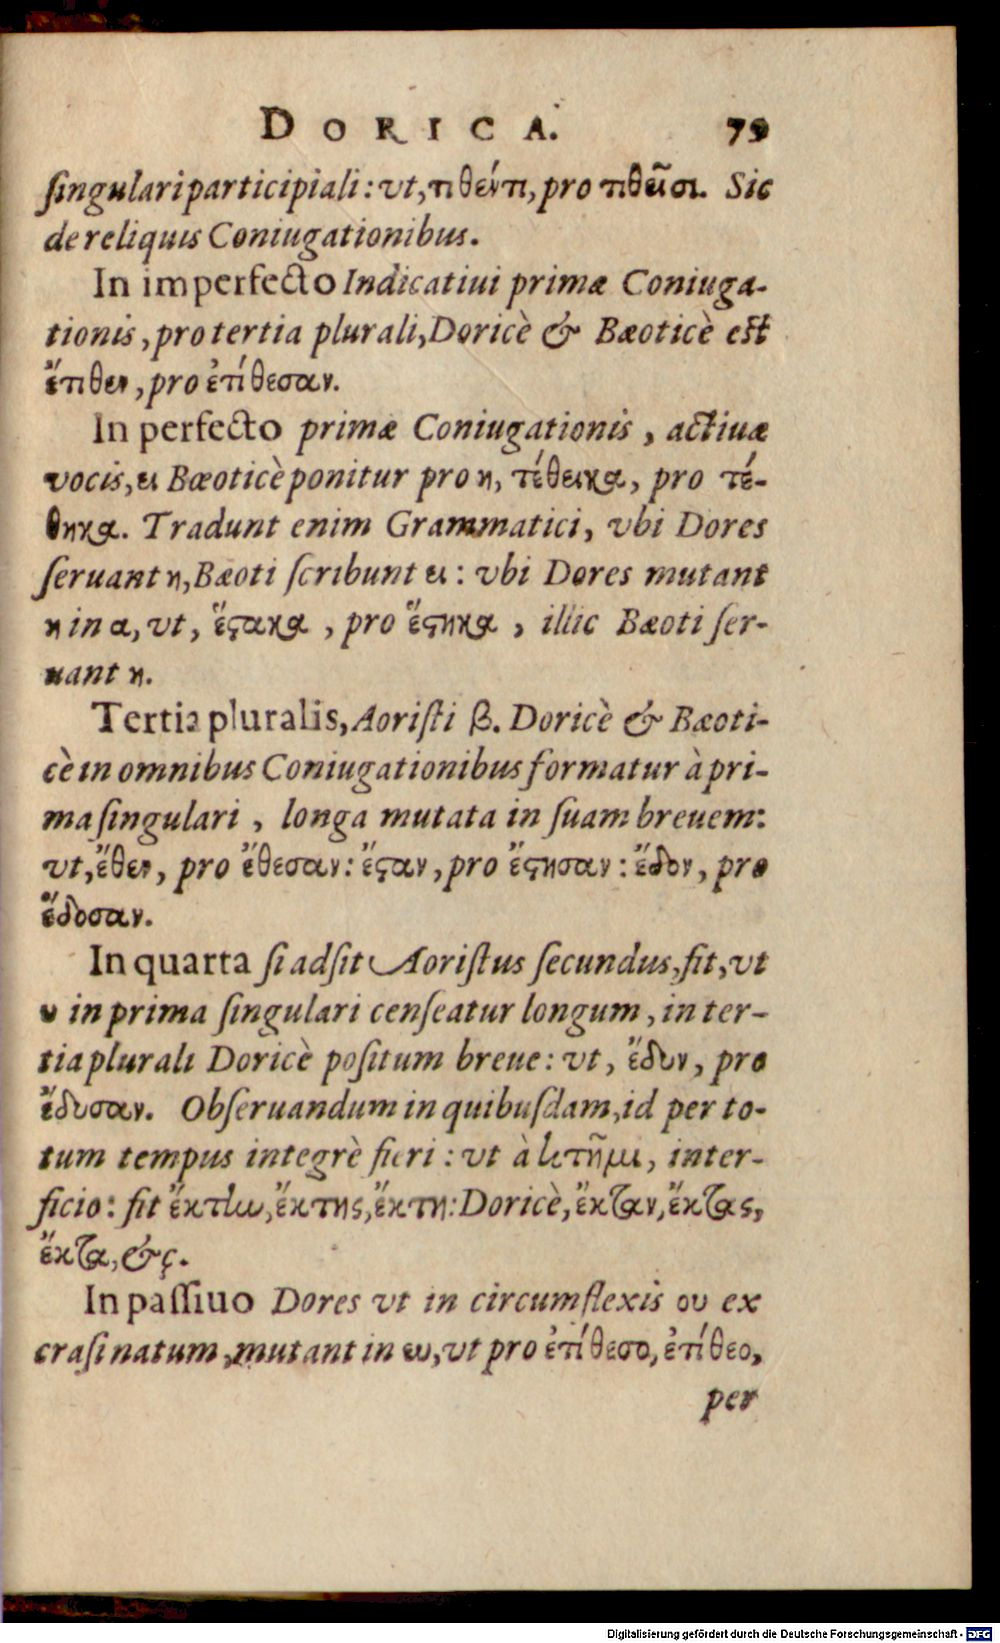 DORICA. 79
ſingulari participiali: vt, τιθέντι, pro τιθεῖσι. Sic
de reliquis Coniugationibus.
In imperfecto Indicatiui primæ Coniuga-
tionis, pro tertia plurali, Doricè & Bæoticè eſt
ἔτιθεν, pro ἐτίθεσαν.
In perfecto primæ Coniugationis, actiuæ
vocis, ει Bæoticè ponitur pro η, τέθεικα, pro τέ-
θηκα. Tradunt enim Grammatici, vbi Dores
ſeruant η, Bæoti ſcribunt ει: vbi Dores mutant
η in α, vt, ἔϛακα, pro ἔϛηκα, illic Bæoti ſer-
uant η.
Tertia pluralis, Aoriſti β. Doricè & Bæoti-
cè in omnibus Coniugationibus formatur à pri-
ma ſingulari, longa mutata in ſuam breuem:
vt, ἔθεν, pro ἔθεσαν: ἔϛαν, pro ἔϛησαν: ἔδον, pro
ἔδοσαν.
In quarta ſi adſit Aoriſtus ſecundus, fit, vt
υ in prima ſingulari cenſeatur longum, in ter-
tia plurali Doricè poſitum breue: vt, ἔδυν, pro
ἔδυσαν. Obſeruandum in quibuſdam, id per to-
tum tempus integrè fieri: vt à κτῆμι, inter-
ficio: fit ἔκτην, ἔκτης, ἔκτη: Doricè, ἔκταν, ἔκτας,
ἔκτα, &c.
In paſſiuo Dores vt in circumflexis ου ex
craſi natum, mutant in ευ, vt pro ἐτίθεσο, ἐτίθεο,
per
Digitalisierung gefördert durch die Deutsche Forschungsgemeinschaft - DFG